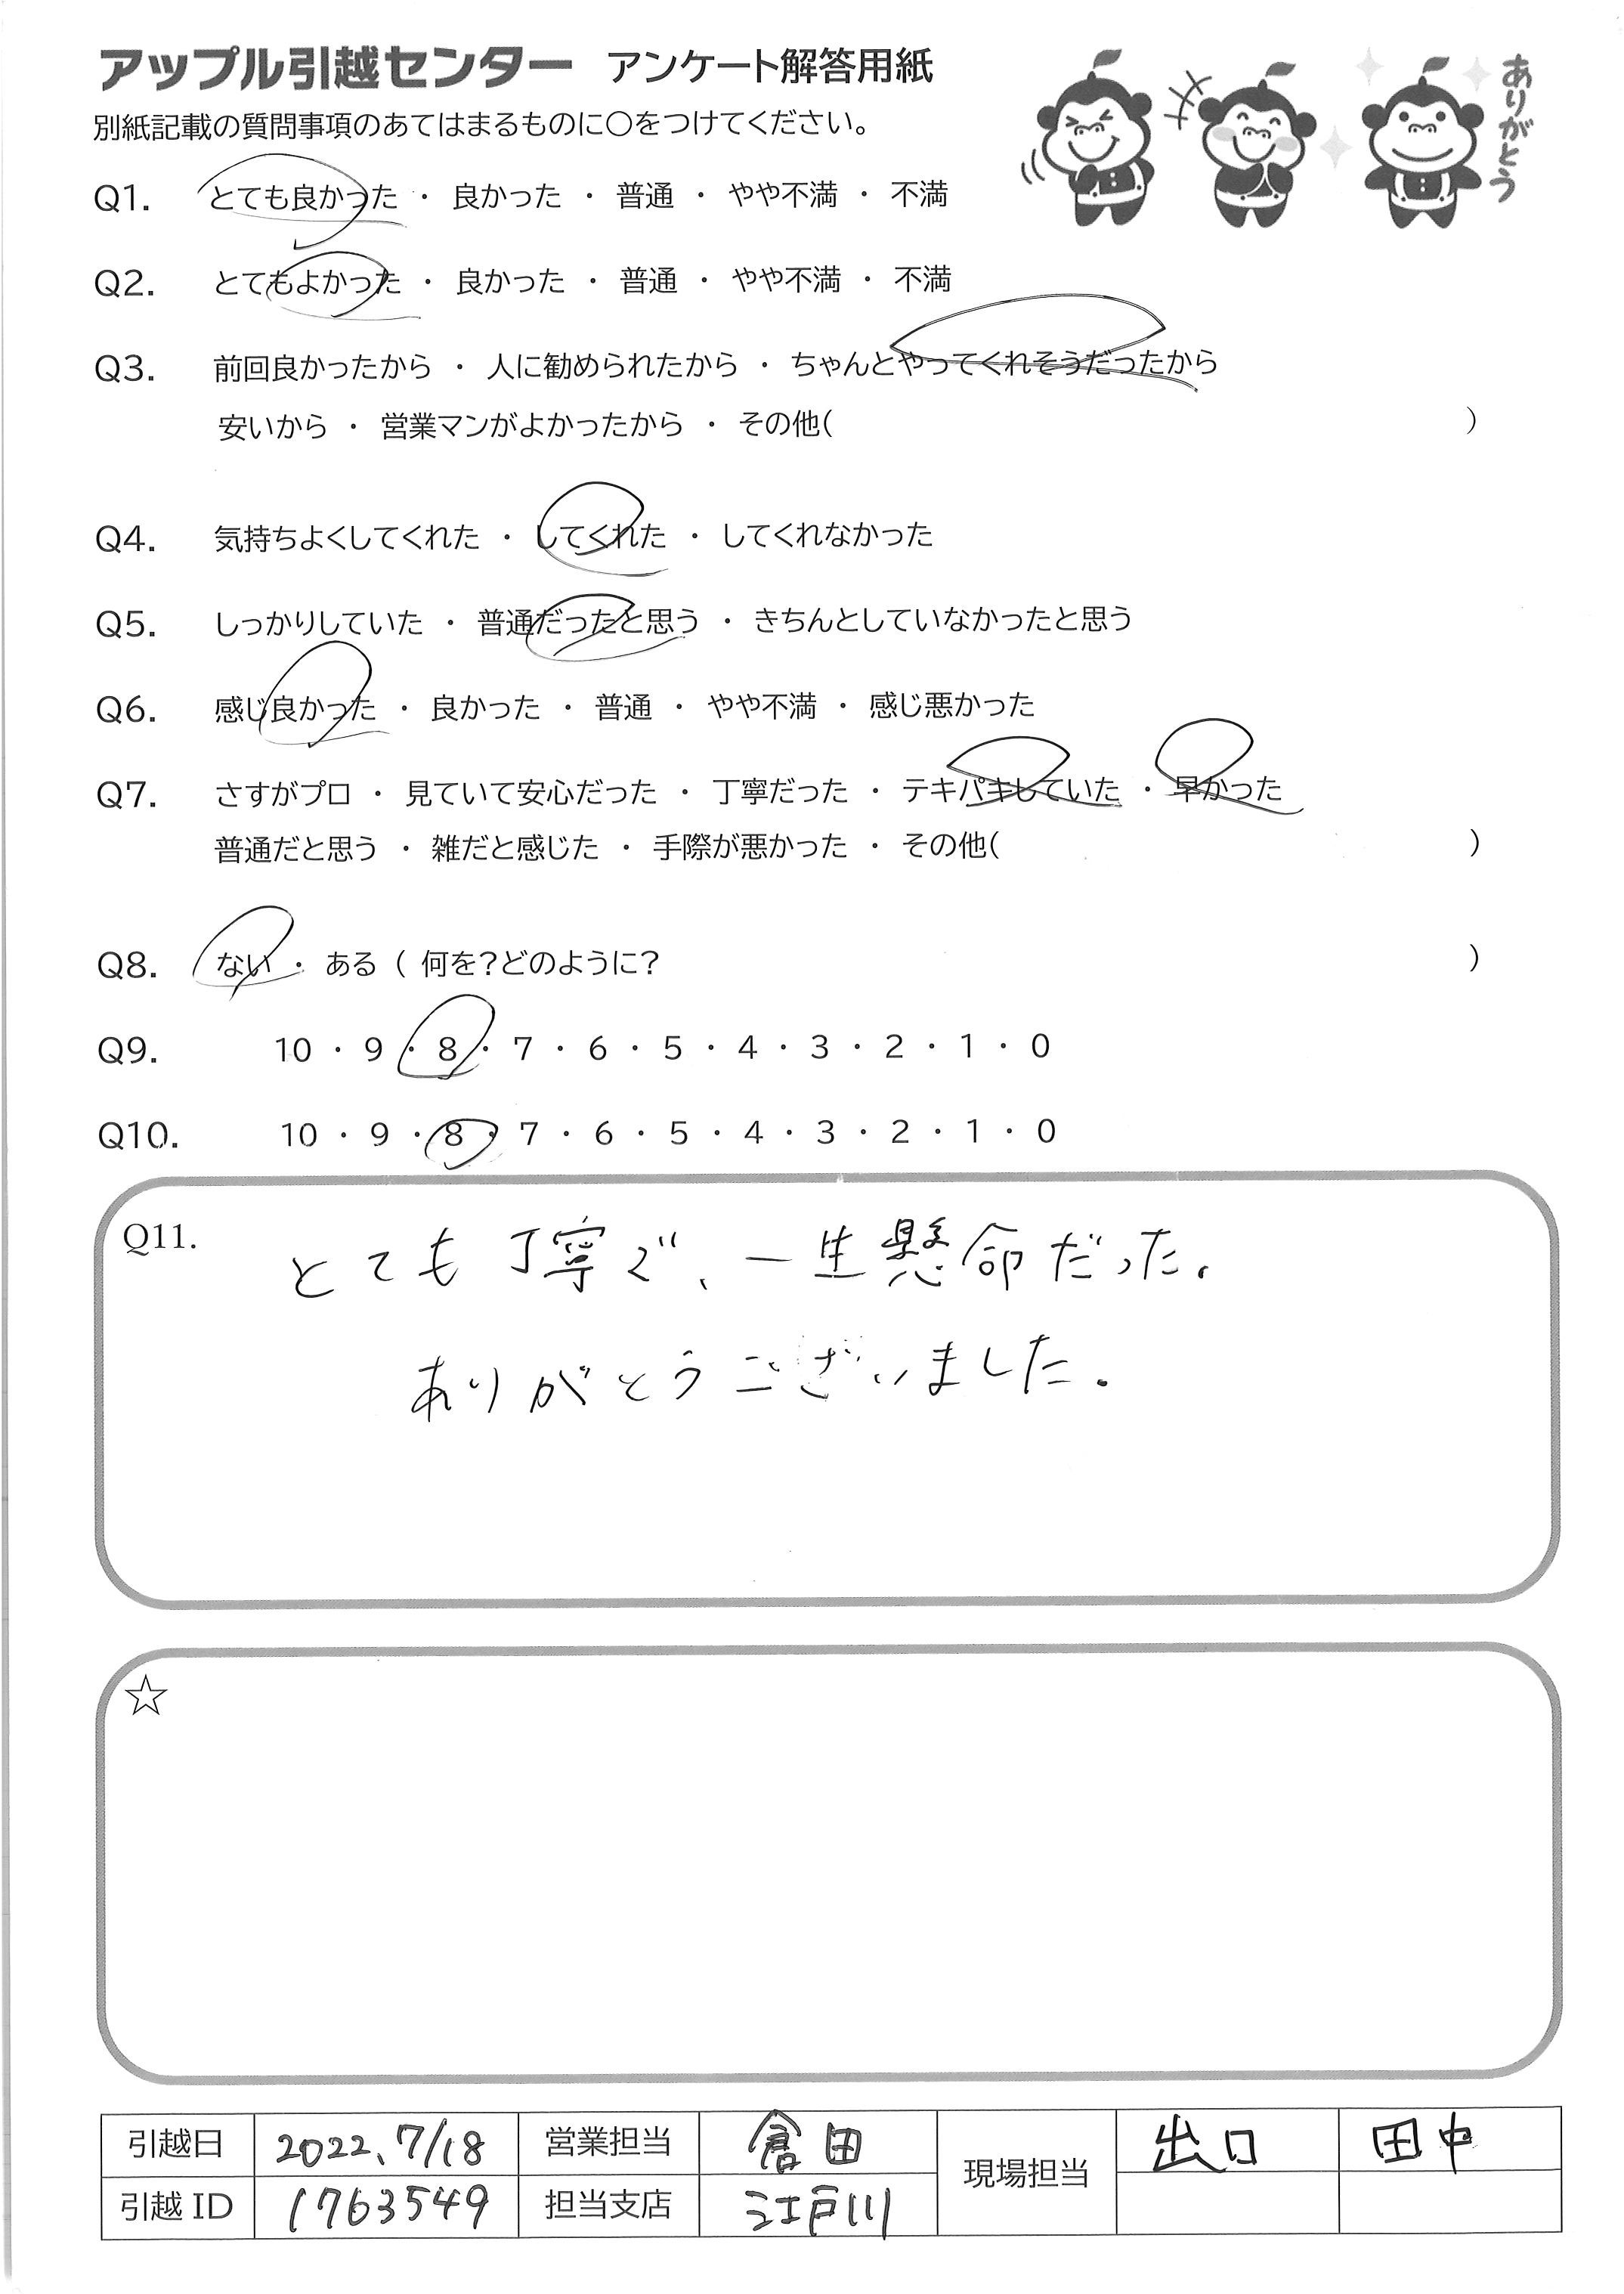 アップル引越センター アンケート解答用紙
ありがとう
別紙記載の質問事項のあてはまるものに○をつけてください。
Q1. とても良かった ・ 良かった ・ 普通 ・ やや不満 ・ 不満
Q2. とてもよかった ・ 良かった ・ 普通 ・ やや不満 ・ 不満
Q3. 前回良かったから ・ 人に勧められたから ・ ちゃんとやってくれそうだったから
安いから ・ 営業マンがよかったから ・ その他( )
Q4. 気持ちよくしてくれた ・ してくれた ・ してくれなかった
Q5. しっかりしていた ・ 普通だったと思う ・ きちんとしていなかったと思う
Q6. 感じ良かった ・ 良かった ・ 普通 ・ やや不満 ・ 感じ悪かった
Q7. さすがプロ ・ 見ていて安心だった ・ 丁寧だった ・ テキパキしていた ・ 早かった
普通だと思う ・ 雑だと感じた ・ 手際が悪かった ・ その他( )
Q8. ない ・ ある ( 何を?どのように? )
Q9. 10 ・ 9 ・ 8 ・ 7 ・ 6 ・ 5 ・ 4 ・ 3 ・ 2 ・ 1 ・ 0
Q10. 10 ・ 9 ・ 8 ・ 7 ・ 6 ・ 5 ・ 4 ・ 3 ・ 2 ・ 1 ・ 0
Q11. とても丁寧で、一生懸命だった。
ありがとうございました。
☆
引越日 2022、7/18 営業担当 倉田 現場担当 出口 田中
引越 ID 1763549 担当支店 江戸川